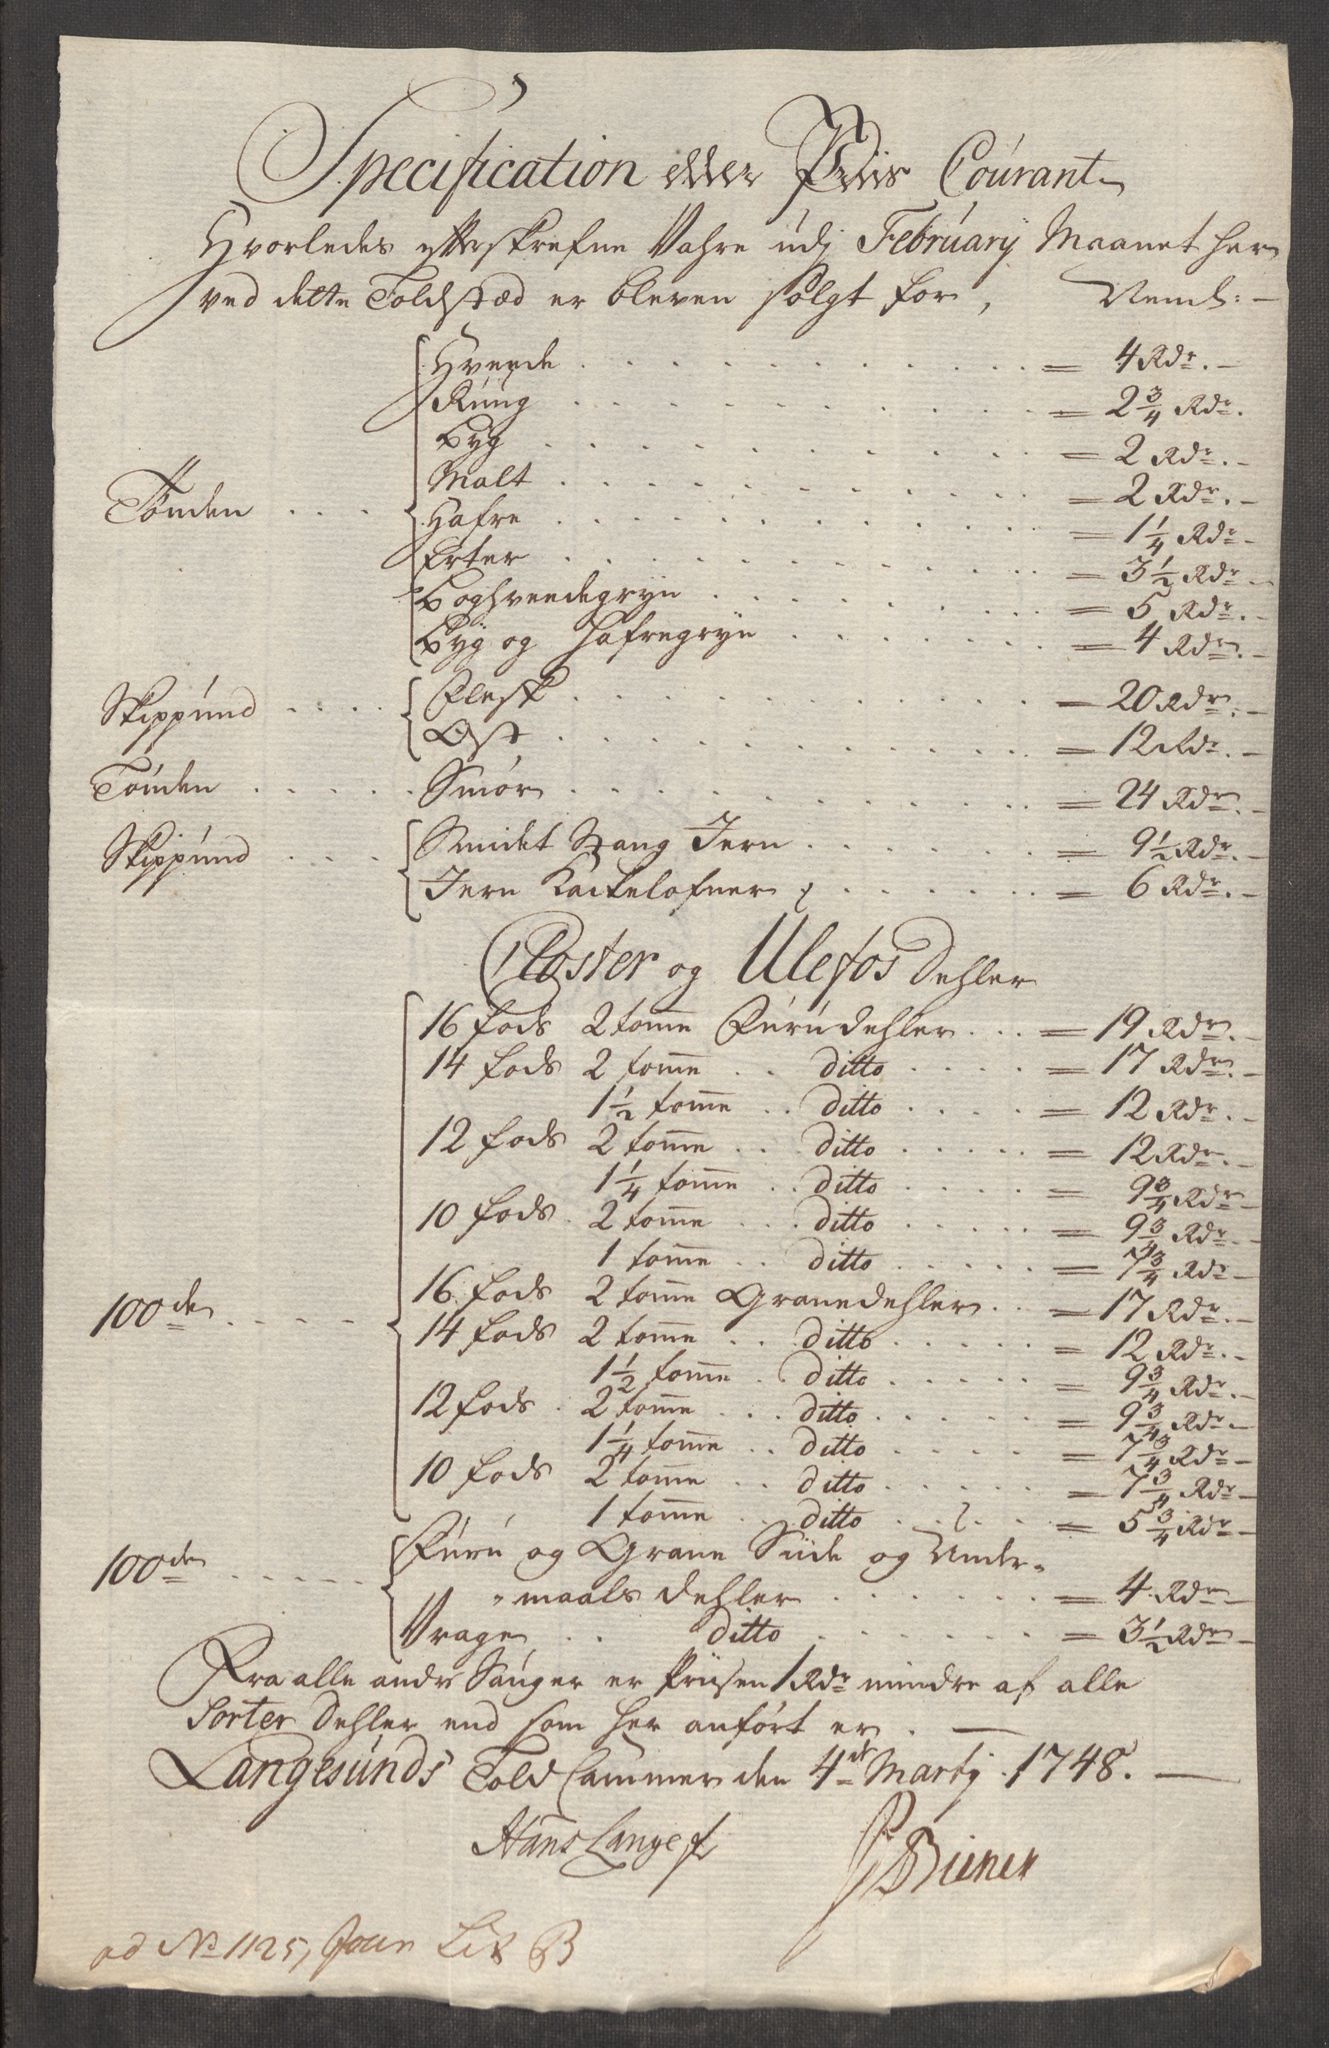 Specification eller Priis Courant
Hvorledes efterskrefne Vahre udj February Maanet her
ved dette Toldstæd er bleven solgt for, Neml:
Tønden
Hvende = 4 Rdr.
Rúúg = 2 3/4 Rdr.
Byg = 2 Rdr.
Malt = 2 Rdr.
Hafre = 1 1/4 Rdr.
Erter = 3 1/2 Rdr.
Boghveedegryn = 5 Rdr.
Byg og Hafregryn = 4 Rdr.
Skippúnd
Flesk = 20 Rdr.
Ost = 12 Rdr.
Tønden Smør = 24 Rdr.
Skippúnd
Smidet Stang Jern = 9 1/2 Rdr.
Jern Kackelofner = 6 Rdr.
Closter og Ulefos Dehler
100de
16 fods 2 tomme Fúrúdehler = 19 Rdr.
14 fods 2 tomme ditto = 17 Rdr.
1 1/2 tomme ditto = 12 Rdr.
12 fods 2 tomme ditto = 12 Rdr.
1 1/4 tomme ditto = 9 3/4 Rdr.
10 fods 2 tomme ditto = 9 3/4 Rdr.
1 tomme ditto = 7 3/4 Rdr.
16 fods 2 tomme Granedehler = 17 Rdr.
14 fods 2 tomme ditto = 12 Rdr.
1 1/2 tomme ditto = 9 3/4 Rdr.
12 fods 2 tomme ditto = 9 3/4 Rdr.
1 1/4 tomme ditto = 7 3/4 Rdr.
10 fods 2 tomme ditto = 7 3/4 Rdr.
1 tomme ditto = 5 3/4 Rdr.
100de
Fúrú og Grane Siide og Under-
maals dehler = 4 Rdr.
Vrage ditto = 3 1/2 Rdr.
Fra alle andre Sauger er Priisen 1 Rdr mindre af alle
Sorter Dehler end som her anført er.
Langesúnds Told Cammer den 4de Martij 1748.
Hans Lange
Biener
ad No 1125, Jour Lit B